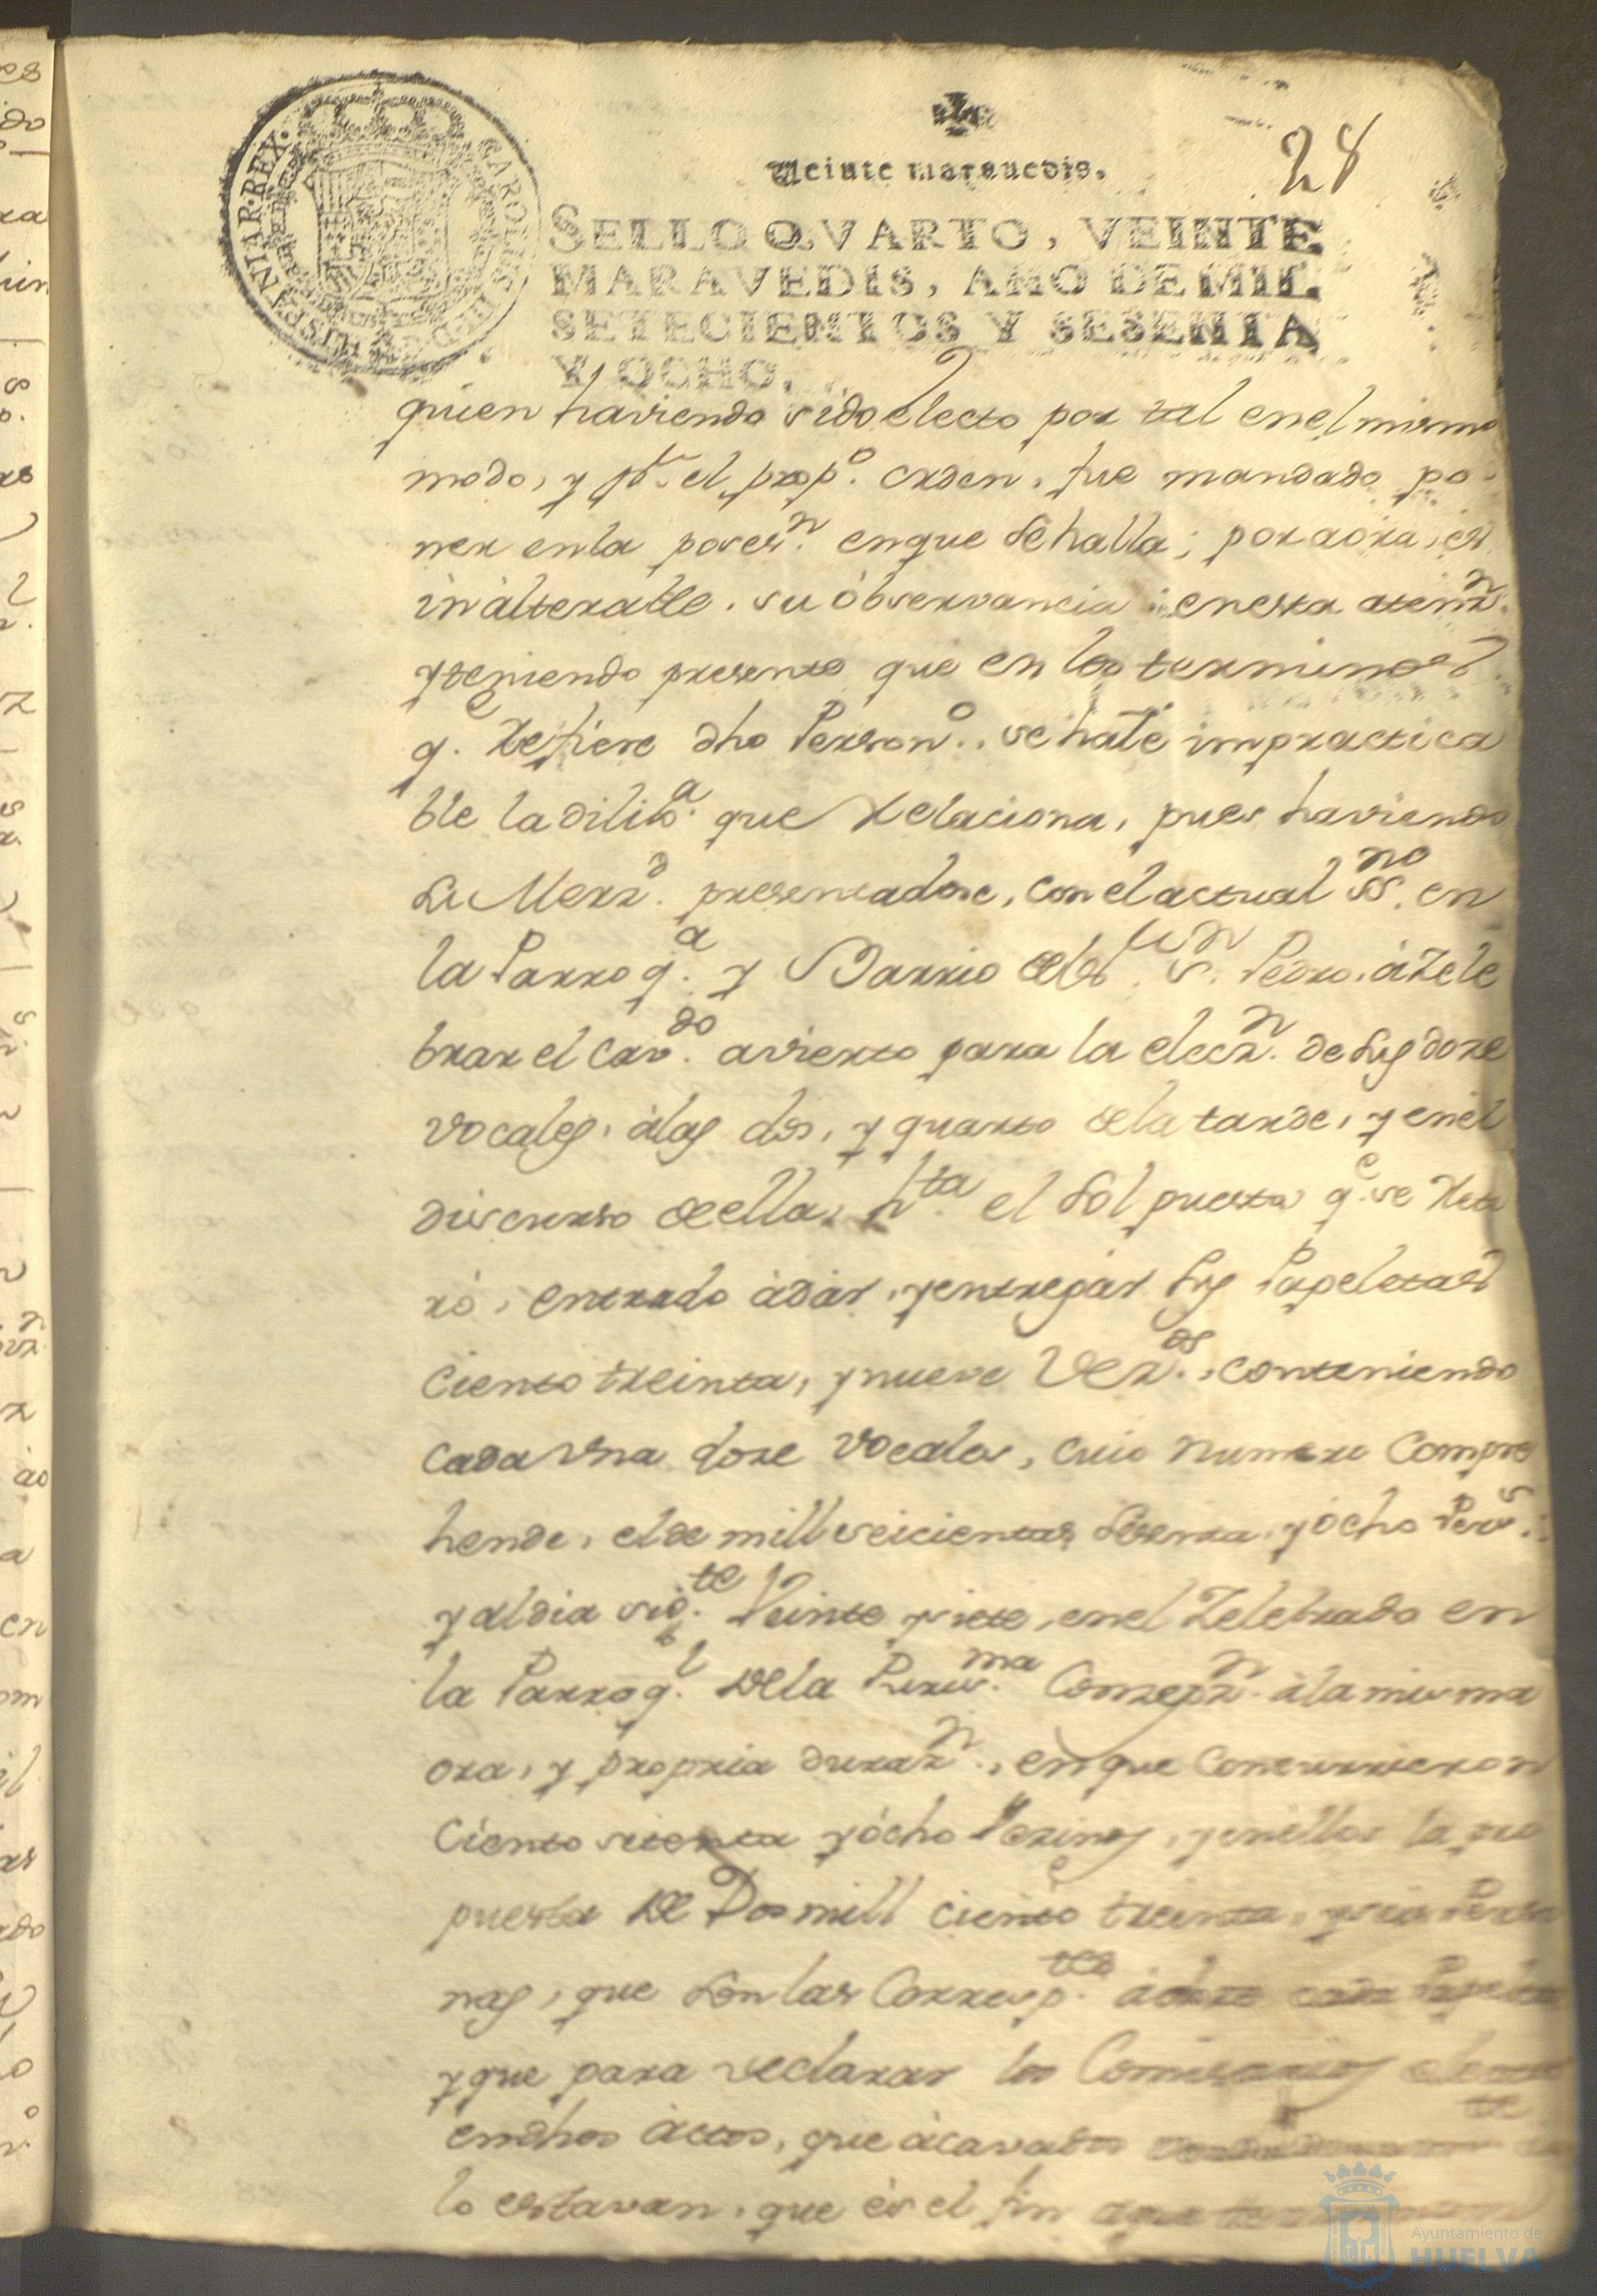 28
Veinte maravedis.
SELLO QVARTO, VEINTE
MARAVEDIS, AÑO DE MIL
SETECIENTOS Y SESENTA
Y OCHO.
CAROLUS III D G HISPANIAR. REX.
quien haviendo sido electo por tal en el mismo
modo, y pr. el propo. orden, fue mandado po-
ner en la poses.n en que se halla; por aora, es
inàlterable su observancia: en esta atenz.n
y teniendo presente que en los terminos
q.e refiere dho Person.o, se haze impractica
ble la dilig.a que relaciona, pues haviendo
su Merz.d presentadose, con el actual ss.no en
la Parroq.a y Barrio del S.n Pedro, à zele
brar el cav.do avierto para la elecz.n de sus doze
vocales, àlas dos, y quarto dela tarde, y en el
discurso de ella, h.ta el sol puesto q.e se reti
rò, entrado àdar, y entregar sus Papeletas
ciento treinta, y nueve Vez.os, conteniendo
cada una doze vocales, cuio numero compre
hende, el de mill seicientas sesenta, y ocho Pers.s
y al dia sig.te Veinte y siete, en el zelebrado en
la Parroq.l de la Puris.ma Conzepz.n àla misma
ora, y propria duraz.n, en que concurrieron
ciento setenta y ocho Vezinos, y en ellos la pro
puesta de Dos mill ciento treinta, y seis Perso
nas, que son las Corresp.tes à doze cada Papeleta
y que para declarar los Comisarios
en dhos àctos, que àcavados
lo estavan, que ès el fin
Ayuntamiento de
HUELVA